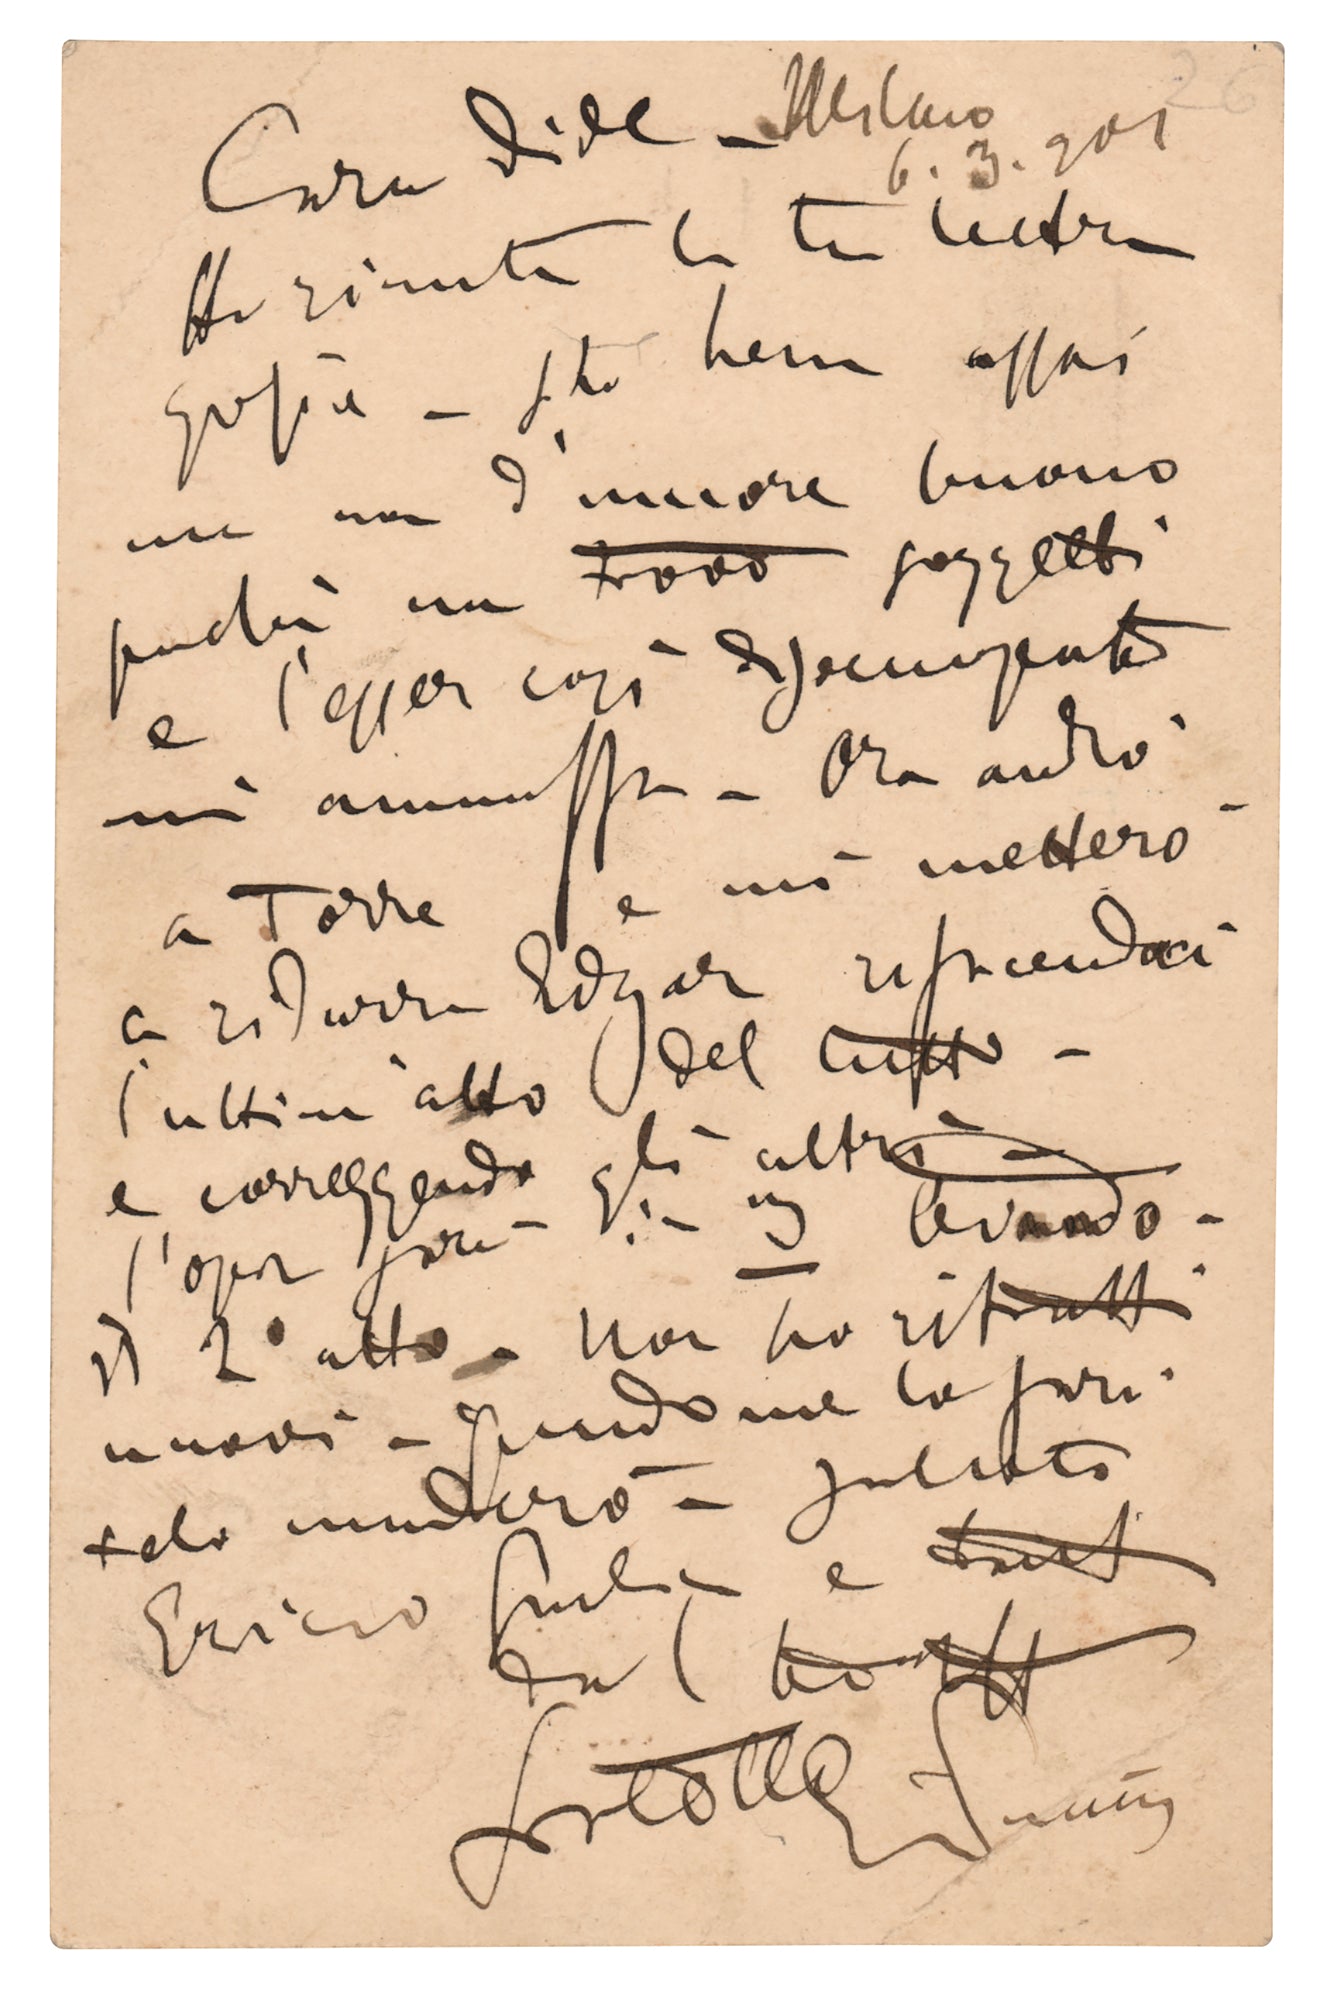 26
Cara Dide – Milano
6.3.901
Ho ricevuta la tua lettera
grafia – Sto bene assai
ma non d'umore buono
perchè non trovo soggetti
e l'esser così disoccupato
mi ammuffa – Ora andrò
a Torre e mi metterò
a ridurre Edgar rifacendoci
l'ultim'atto del tutto –
e correggendo gli altri –
l'opera sarà in 3 levando –
il 2° atto – Non ho ritratti
nuovi – quando me lo farò
telo manderò – salutato
Enrico Giulia e
dal
fratello Giacomo